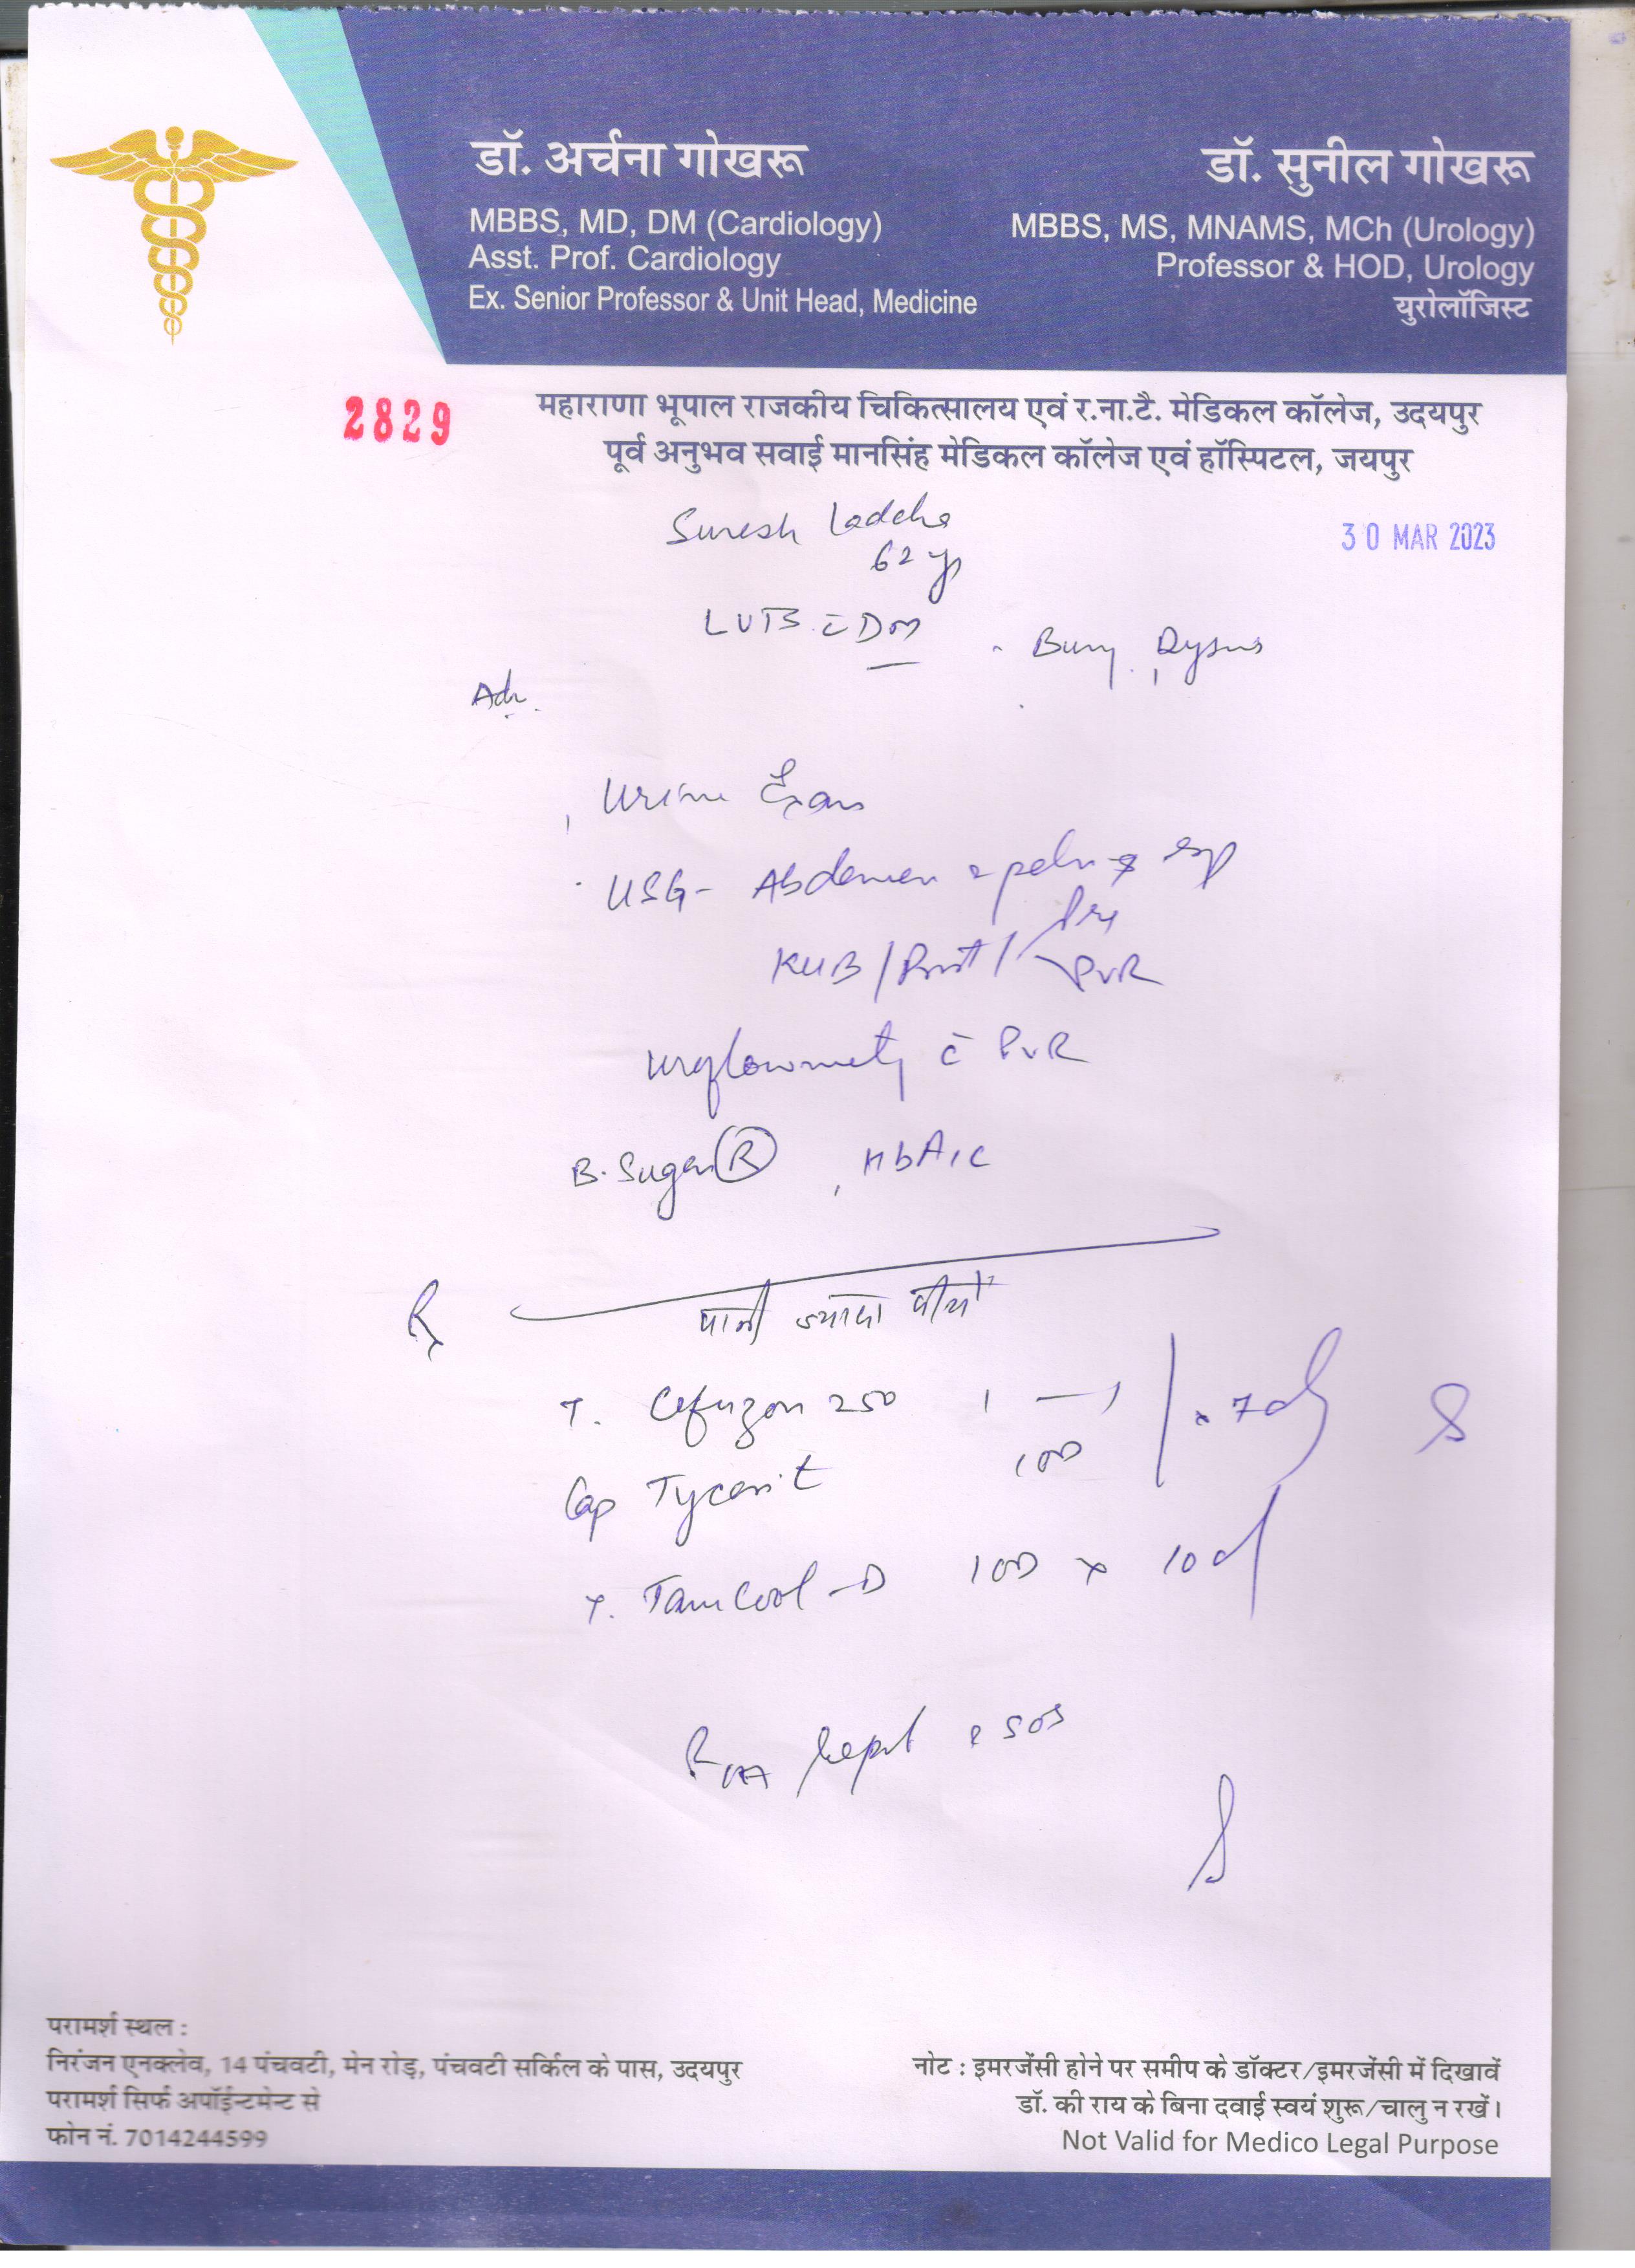 डॉ. अर्चना गोखरू
MBBS, MD, DM (Cardiology)
Asst. Prof. Cardiology
Ex. Senior Professor & Unit Head, Medicine
डॉ. सुनील गोखरू
MBBS, MS, MNAMS, MCh (Urology)
Professor & HOD, Urology
युरोलॉजिस्ट
2829
महाराणा भूपाल राजकीय चिकित्सालय एवं र.ना.टै. मेडिकल कॉलेज, उदयपुर
पूर्व अनुभव सवाई मानसिंह मेडिकल कॉलेज एवं हॉस्पिटल, जयपुर
30 MAR 2023
Suresh
62 y
LUTS c̄ DM
Adv.
Urine Exam
USG - Abdomen & pelvis
KUB / Prost / Pre
PVR
Uroflowmetry c̄ PVR
B. Sugar (R) , HbA1c
Rx
पानी ज्यादा पीयो
T. 250 1 — 1 x 7d
Cap 1OD
T. D 1OD x 10d
Report & SOS
परामर्श स्थल :
निरंजन एनक्लेव, 14 पंचवटी, मेन रोड़, पंचवटी सर्किल के पास, उदयपुर
परामर्श सिर्फ अपॉईन्टमेन्ट से
फोन नं. 7014244599
नोट : इमरजेंसी होने पर समीप के डॉक्टर/इमरजेंसी में दिखावें
डॉ. की राय के बिना दवाई स्वयं शुरू/चालु न रखें।
Not Valid for Medico Legal Purpose